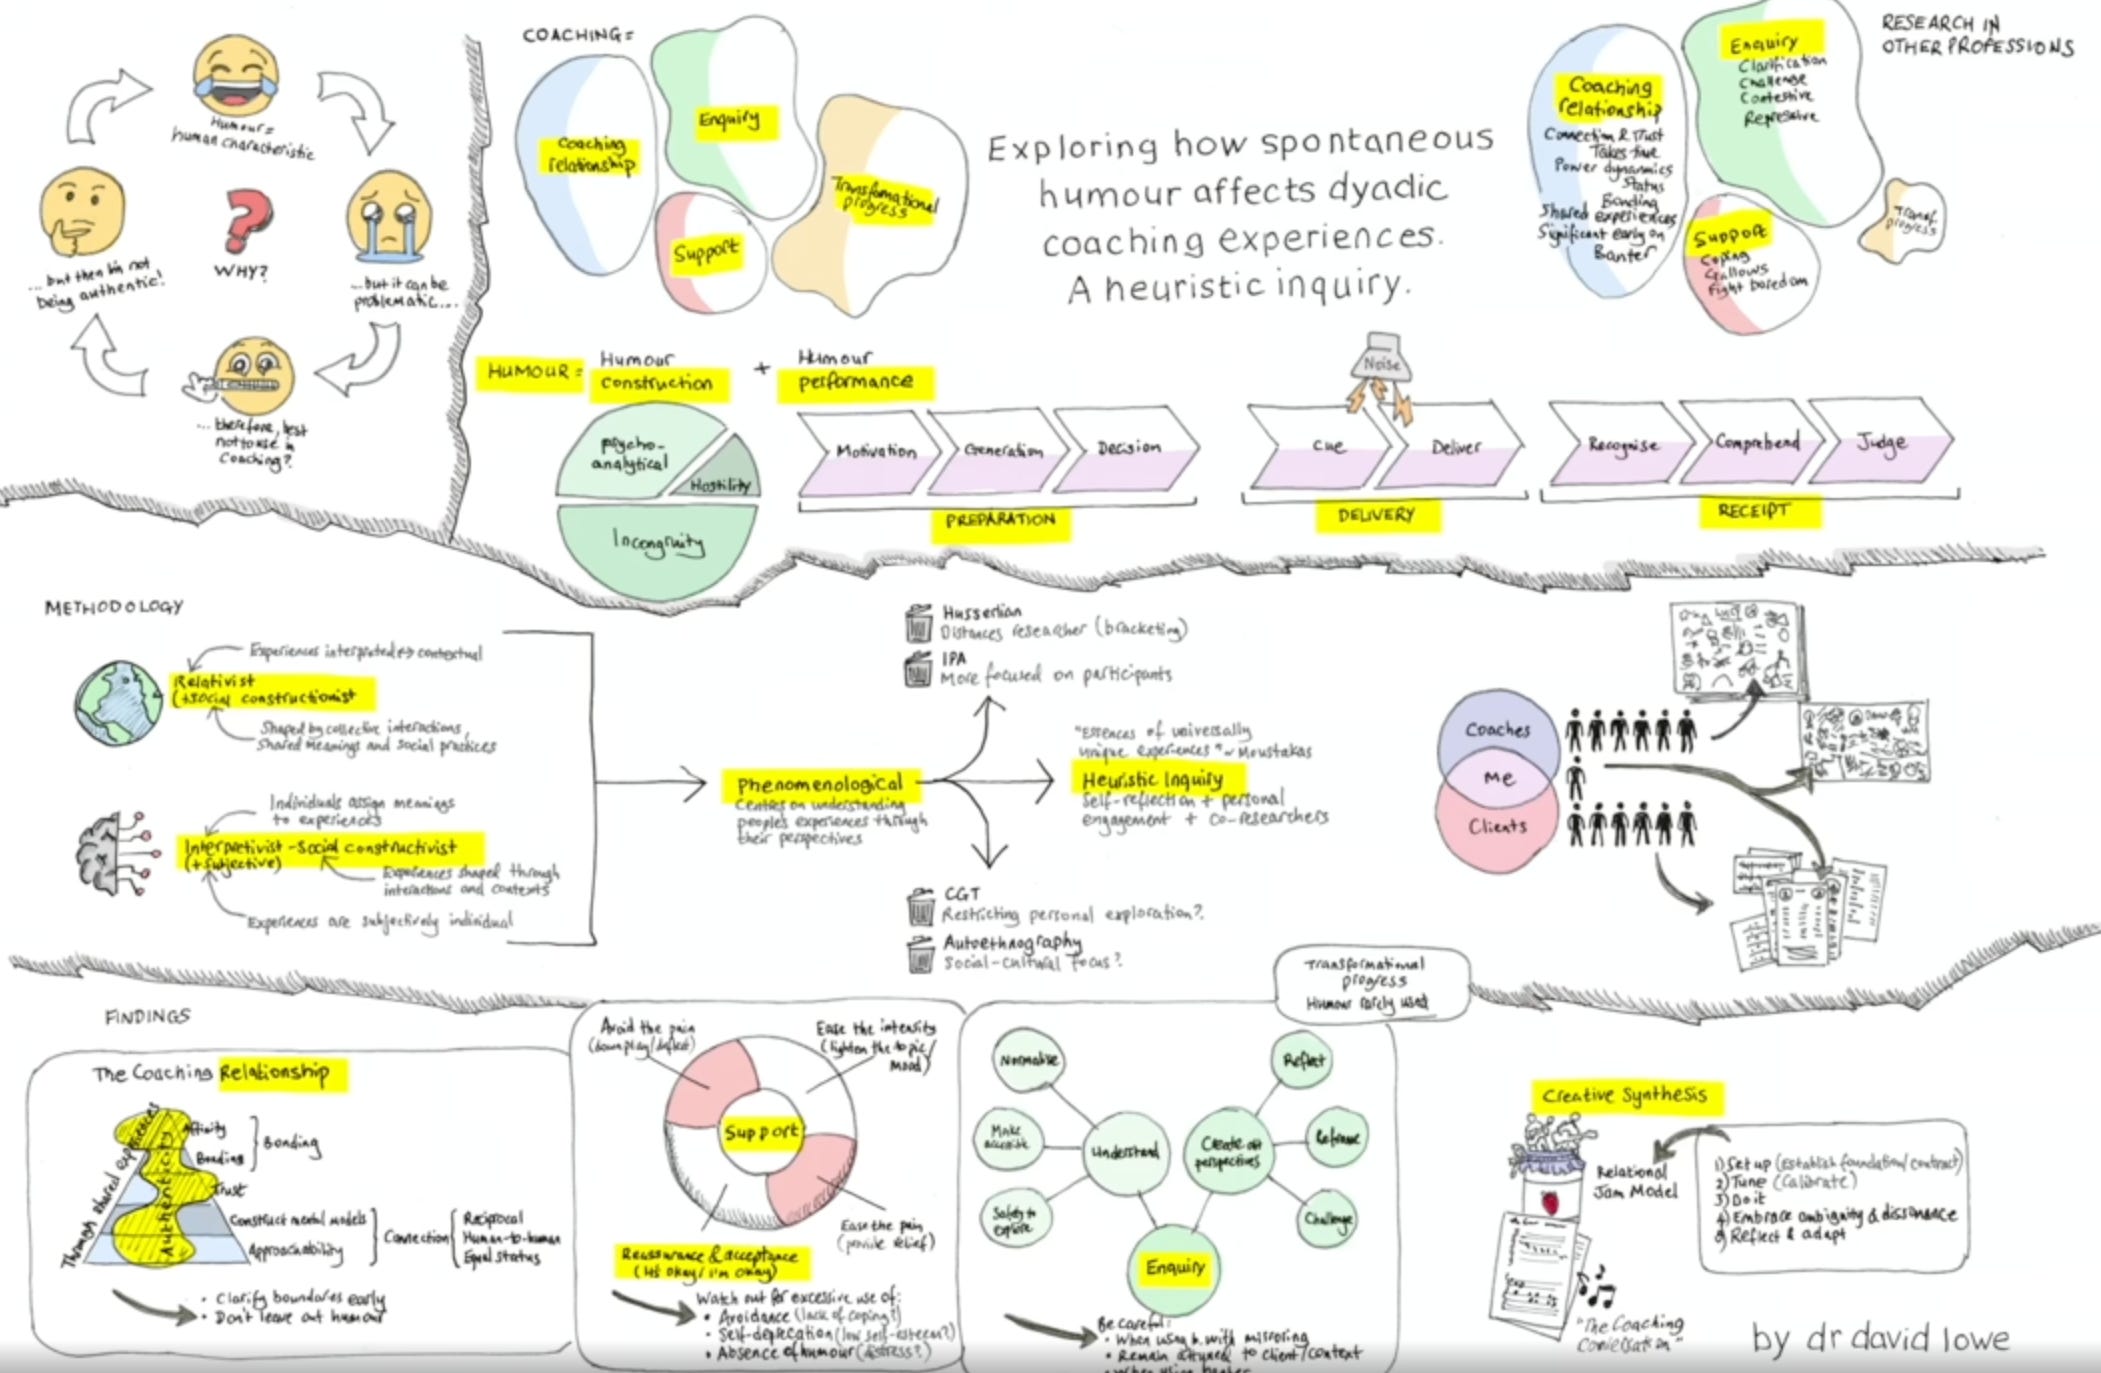 Humour =
human characteristic
...but it can be
problematic....
... therefore, best
not to use in
Coaching?
... but then I'm not
being authentic!
WHY?
COACHING =
Coaching
relationship
Enquiry
Support
Transformational
progress
Exploring how spontaneous
humour affects dyadic
coaching experiences.
A heuristic inquiry.
RESEARCH IN
OTHER PROFESSIONS
Coaching
relationship
Connection & Trust
Takes time
Power dynamics
Status
Bonding
Shared experiences
Significant early on
Banter
Enquiry
Clarification
Challenge
Contestive
Repressive
Support
Coping
Gallows
Fight boredom
Transf.
progress
HUMOUR =
Humour
construction
+
Humour
performance
psycho-
analytical
Hostility
Incongruity
Motivation
Generation
Decision
PREPARATION
Noise
Cue
Deliver
DELIVERY
Recognise
Comprehend
Judge
RECEIPT
METHODOLOGY
Experiences interpreted contextual
Relativist
(+social constructionist
Shaped by collective interactions,
Shared meanings and social practices
Individuals assign meanings
to experiences
Interpretivist - Social constructivist
(+subjective)
Experiences shaped through
interactions and contexts
Experiences are subjectively individual
Phenomenological
Centres on understanding
people's experiences through
their perspectives
Husserlian
Distances researcher (bracketing)
IPA
More focused on participants
"Essences of universally
unique experiences" ~ Moustakas
Heuristic Inquiry
Self-reflection + personal
engagement + co-researchers
CGT
Restricting personal exploration?
Autoethnography
Social-cultural focus?
Coaches
Me
Clients
FINDINGS
The Coaching Relationship
Through shared experiences
Authenticity
Affinity
Bonding
Trust
Bonding
Construct mental models
Approachability
Connection
Reciprocal
Human-to-human
Equal status
• Clarify boundaries early
• Don't leave out humour
Avoid the pain
(downplay/deflect)
Ease the intensity
(lighten the topic/
mood)
Support
Ease the pain
(provide relief)
Reassurance & acceptance
(it's okay/i'm okay)
Watch out for excessive use of:
• Avoidance (lack of coping?)
• Self-deprecation (low self-esteem?)
• Absence of humour (distress?)
Transformational
progress
Humour rarely used
Normalise
Make
accessible
Safety to
explore
Understand
Create alt
perspectives
Reflect
Reframe
Challenge
Enquiry
Be careful:
• When using h. with mirroring
• Remain attuned to client/context
Creative Synthesis
Relational
Jam Model
1) Set up (establish foundation/contract)
2) Tune (Calibrate)
3) Do it
4) Embrace ambiguity & dissonance
5) Reflect & adapt
"The Coaching
Conversation"
by dr david lowe